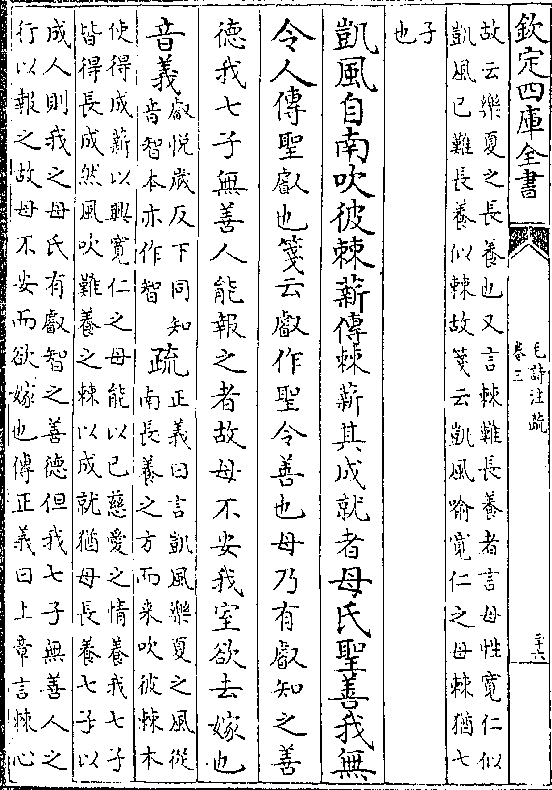 欽定四庫全書
毛詩注疏
卷三
三十六
故云樂夏之長養也又言棘難長養者言母性寬仁似
凱風已難長養似棘故箋云凱風喻寬仁之母棘猶七
子
也
凱風自南吹彼棘薪傳棘薪其成就者母氏聖善我無
令人傳聖叡也箋云叡作聖令善也母乃有叡知之善
德我七子無善人能報之者故母不安我室欲去嫁也
音義叡悅歲反下同知
音智本亦作智
疏正義曰言凱風樂夏之風從
南長養之方而來吹彼棘木
使得成薪以興寬仁之母能以已慈愛之情養我七子
皆得長成然風吹難養之棘以成就猶母長養七子以
成人則我之母氏有叡智之善德但我七子無善人之
行以報之故母不安而欲嫁也傳正義曰上章言棘心